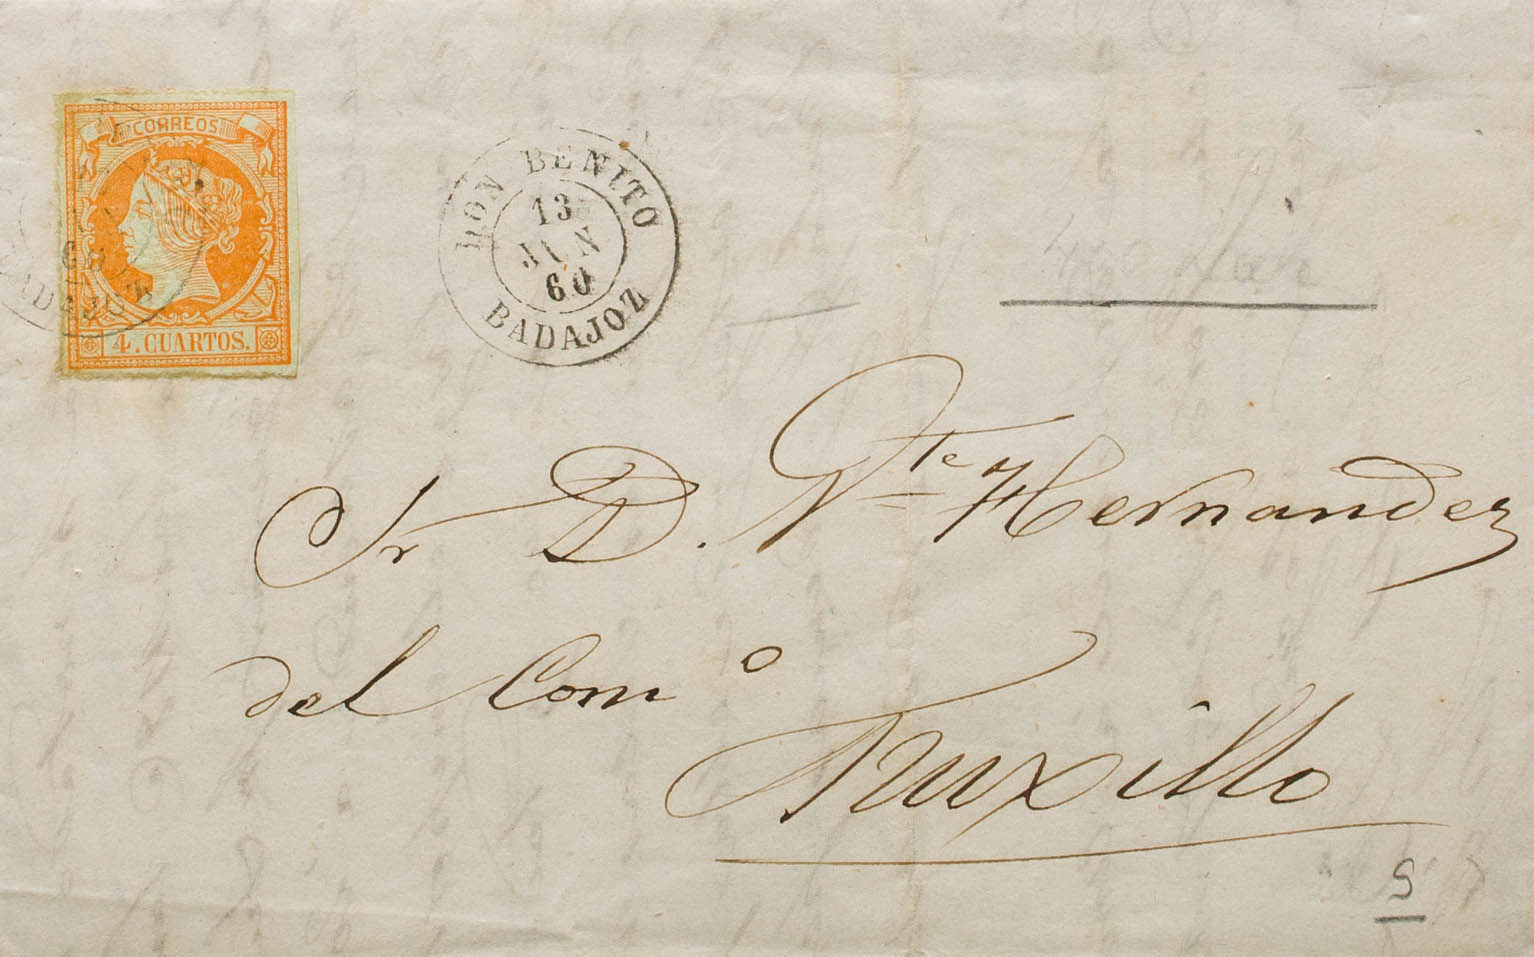 CORREOS
4. CUARTOS.
BADAJOZ
DON BENITO
13
JUN
60
BADAJOZ
Sr D. Vte Hernandez
del Comº
Truxillo